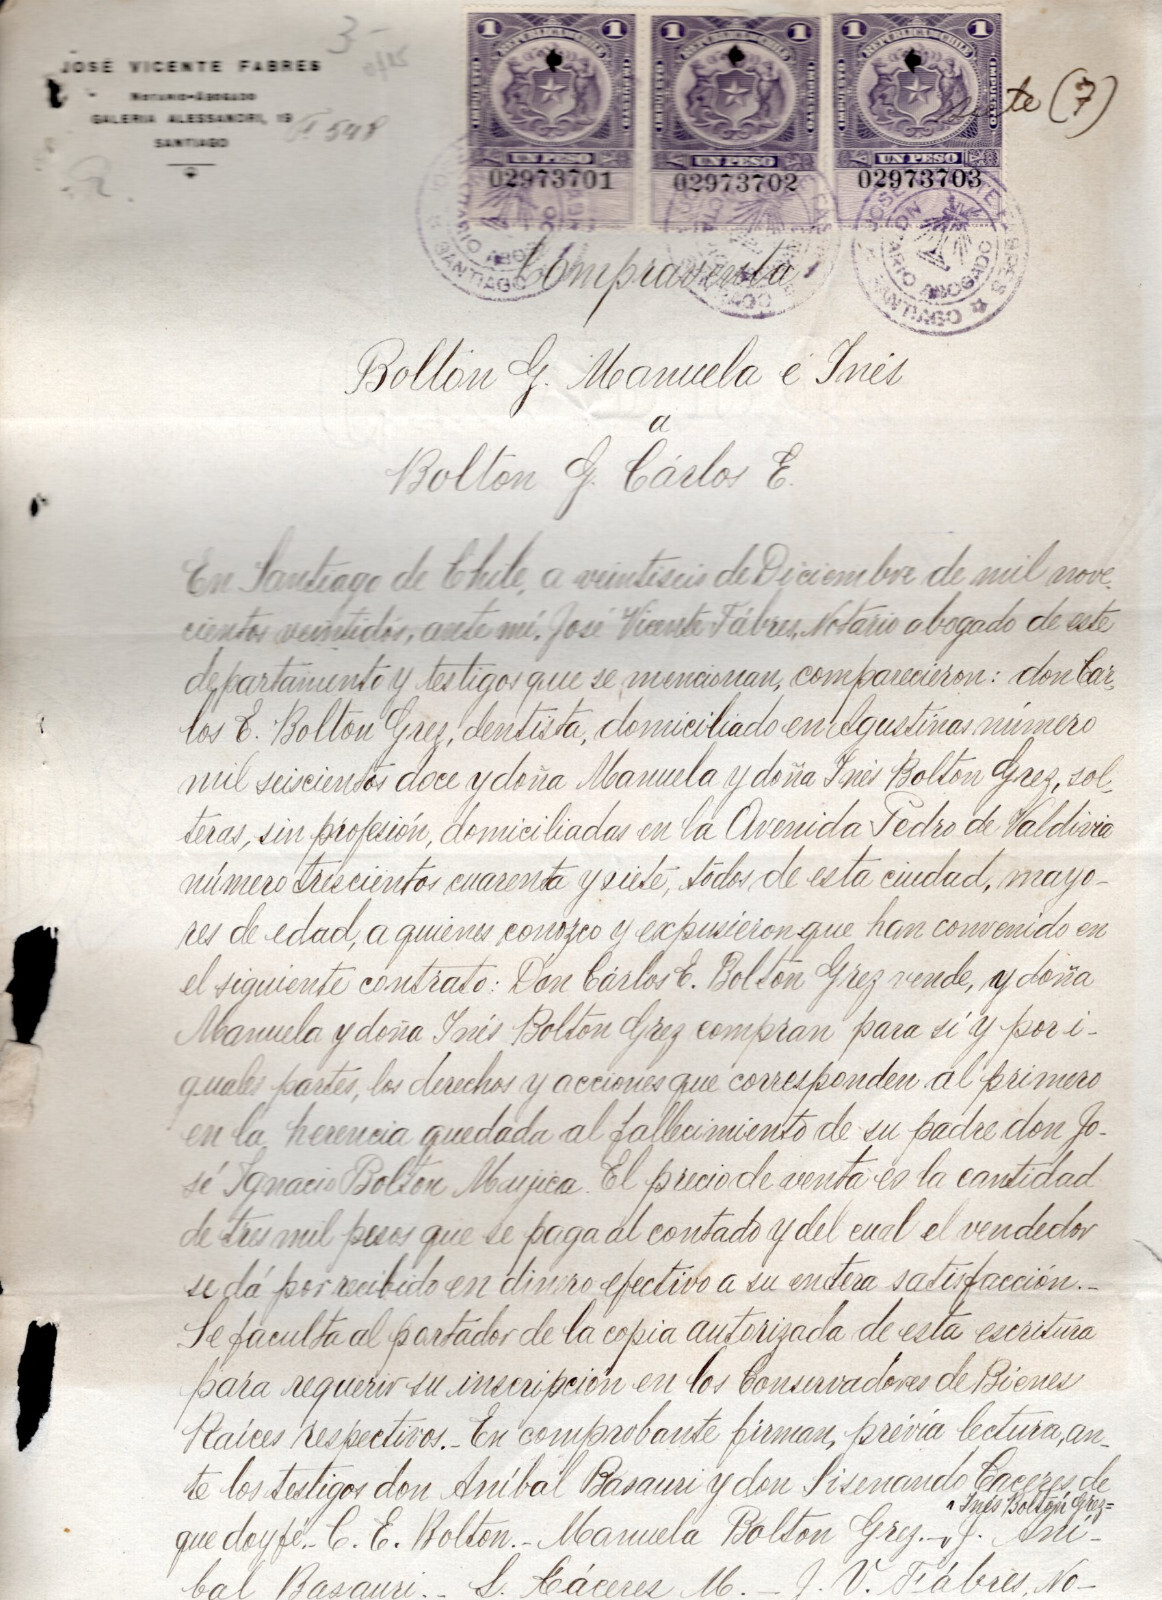 JOSÉ VICENTE FABRES
NOTARIO-ABOGADO
GALERIA ALESSANDRI, 19
SANTIAGO
3-
548
1 REPUBLICA DE CHILE 1
IMPUESTO IMPUESTO
UN PESO
02973701
1 REPUBLICA DE CHILE 1
IMPUESTO IMPUESTO
UN PESO
02973702
1 REPUBLICA DE CHILE 1
IMPUESTO IMPUESTO
UN PESO
02973703
siete (7)
NOTARIO ABOGADO
SANTIAGO
Compraventa
Bolton G. Manuela é Inés
a
Bolton G. Cárlos E.
En Santiago de Chile, a veintiseis de Diciembre de mil nove-
cientos veintidós, ante mí, José Vicente Fábres, Notario abogado de este
departamento y testigos que se mencionan, comparecieron: don Car-
los E. Bolton Grez, dentista, domiciliado en Agustinas número
mil seiscientos doce y doña Manuela y doña Inés Bolton Grez, sol-
teras, sin profesión, domiciliadas en la Avenida Pedro de Valdivia
número trescientos cuarenta y siete, todos de esta ciudad, mayo-
res de edad, a quienes conozco y expusieron que han convenido en
el siguiente contrato: Don Cárlos E. Bolton Grez vende, y doña
Manuela y doña Inés Bolton Grez compran para sí y por i-
guales partes, los derechos y acciones que corresponden al primero
en la herencia quedada al fallecimiento de su padre don Jo-
sé Ignacio Bolton Mujica. El precio de venta es la cantidad
de tres mil pesos que se paga al contado y del cual el vendedor
se dá por recibido en dinero efectivo a su entera satisfacción.-
Se faculta al portador de la copia autorizada de esta escritura
para requerir su inscripción en los Conservadores de Bienes
Raíces respectivos.- En comprobante firman, prévia lectura, an-
te los testigos don Aníbal Basauri y don Sisenando Caceres de
Inés Bolton Grez=
que doy fé.- C. E. Bolton.- Manuela Bolton Grez.- J. Aní-
bal Basauri.- S. Cáceres M.- J. V. Fábres, No-